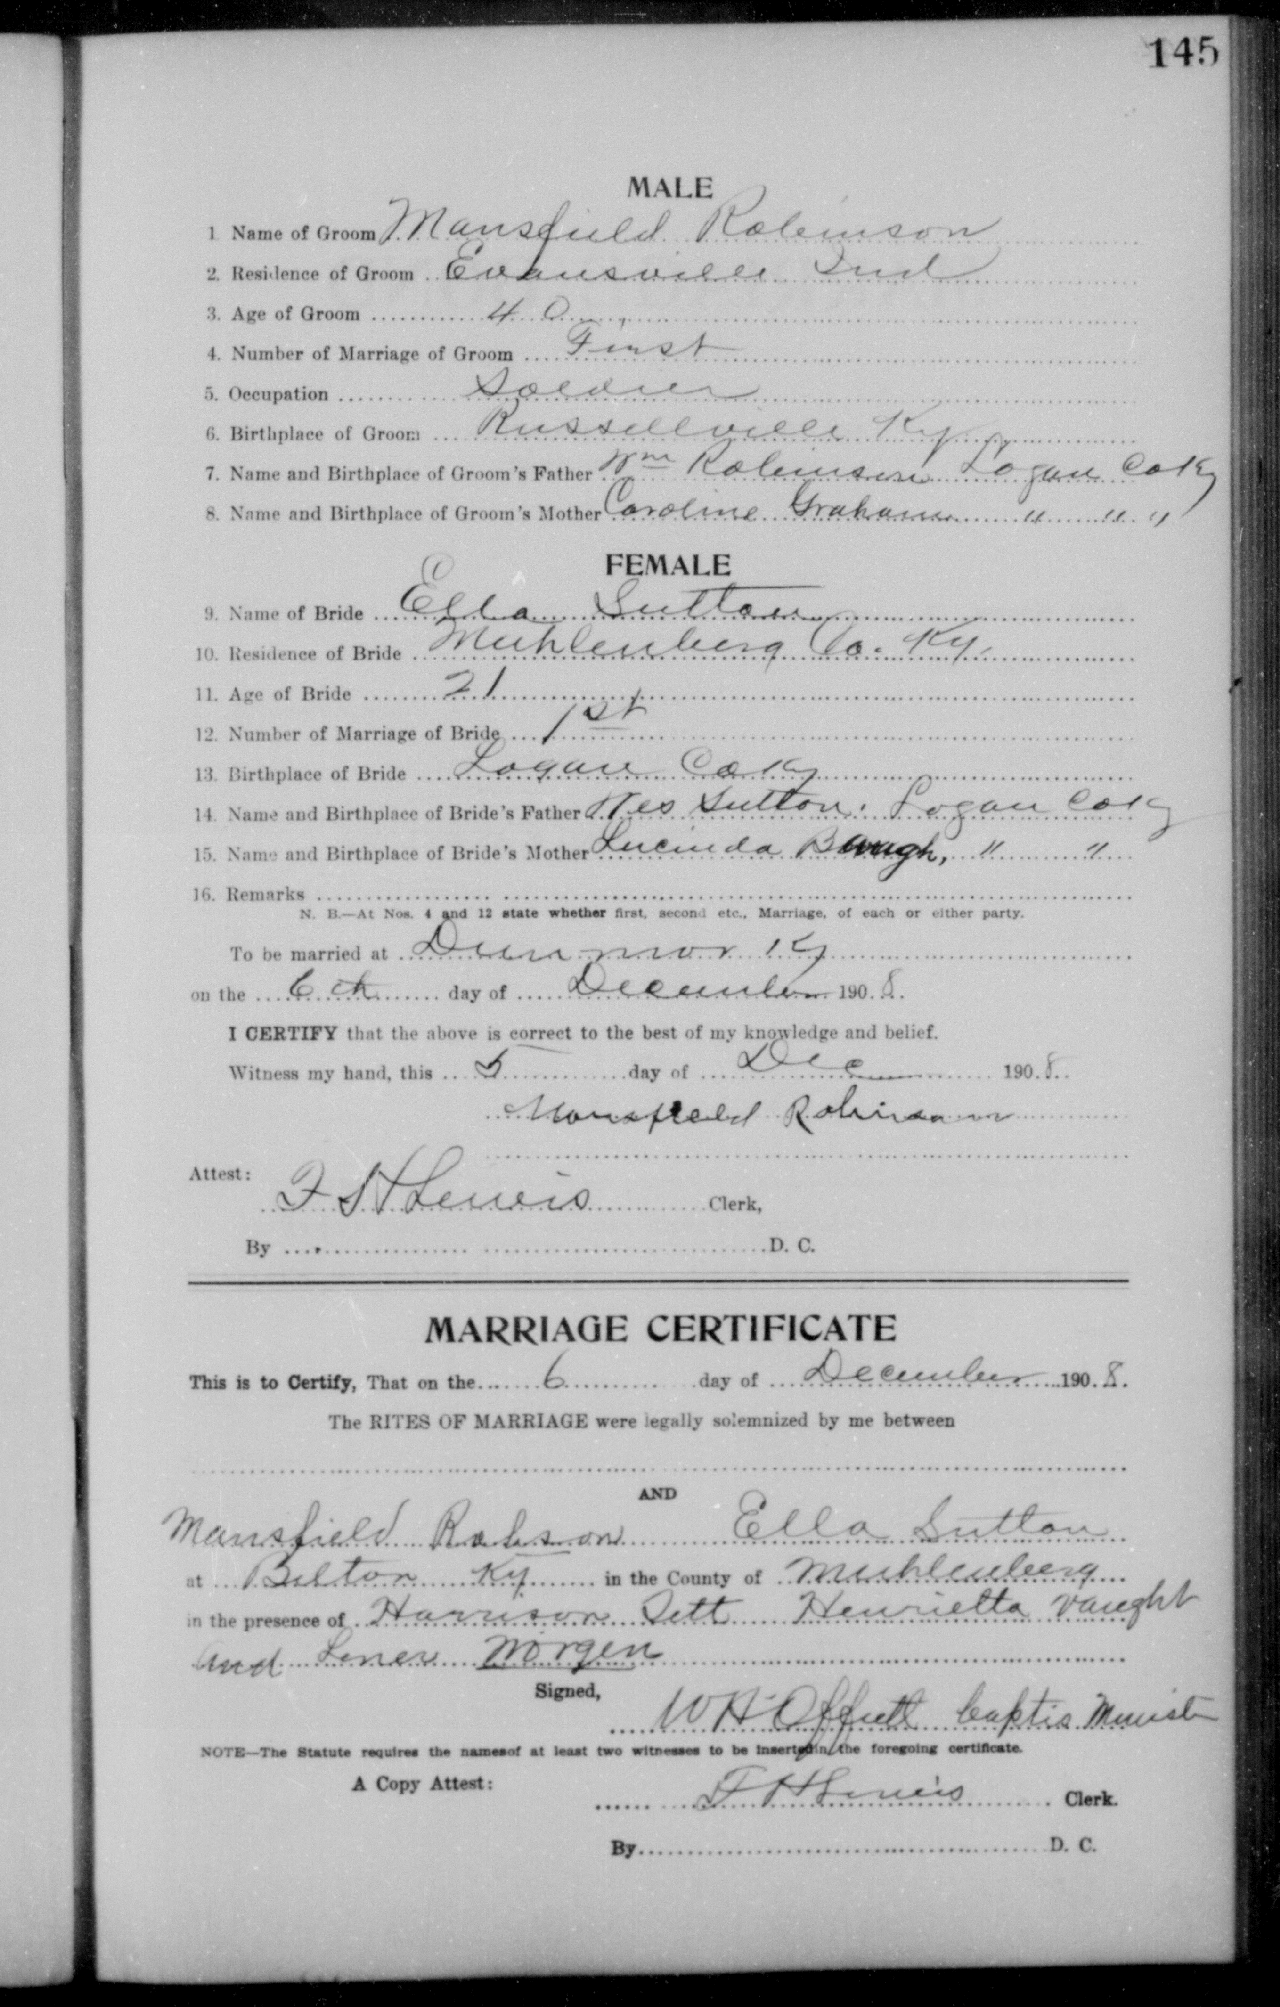 145
MALE
1 Name of Groom Mansfield Robinson
2. Residence of Groom Evansville Ind
3. Age of Groom 40
4. Number of Marriage of Groom First
5. Occupation Soldier
6. Birthplace of Groom Russellville Ky
7. Name and Birthplace of Groom's Father Wm Robinson Logan Co Ky
8. Name and Birthplace of Groom's Mother Caroline Graham " " "
FEMALE
9. Name of Bride Ella Sutton
10. Residence of Bride Muhlenberg Co. Ky.
11. Age of Bride 21
12. Number of Marriage of Bride 1st
13. Birthplace of Bride Logan Co Ky
14. Name and Birthplace of Bride's Father Wes Sutton. Logan Co Ky
15. Name and Birthplace of Bride's Mother Lucinda Baugh, " "
16. Remarks
N. B.—At Nos. 4 and 12 state whether first, second etc., Marriage, of each or either party.
To be married at Dunmor Ky
on the 6th day of December 1908.
I CERTIFY that the above is correct to the best of my knowledge and belief.
Witness my hand, this 5 day of Dec 1908.
Mansfield Robinson
Attest:
Lewis Clerk,
By D. C.
MARRIAGE CERTIFICATE
This is to Certify, That on the 6 day of December 1908.
The RITES OF MARRIAGE were legally solemnized by me between
AND
Mansfield Robson Ella Sutton
at Belton Ky in the County of Muhlenberg
in the presence of Harrison Henrietta Vaught
and Morgen
Signed,
W H Offutt Baptis Minister
NOTE—The Statute requires the namesof at least two witnesses to be insertedin the foregoing certificate.
A Copy Attest:
Lewis Clerk.
By D. C.